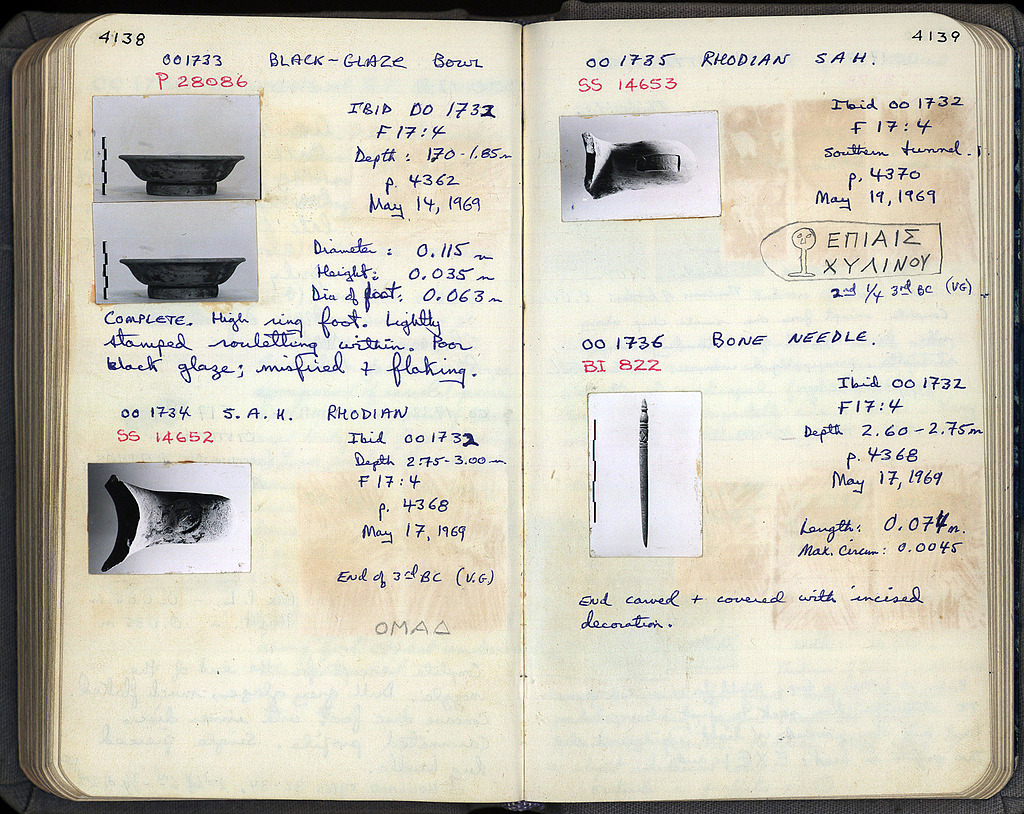 4138
OO 1733 BLACK-GLAZE BOWL
P 28086
IBID OO 1732
F 17:4
Depth: 1.70-1.85m
p. 4362
May 14, 1969
Diameter: 0.115 m
Height: 0.035 m
Dia of foot: 0.063 m
COMPLETE. High ring foot. Lightly
stamped rouletting within. Poor
black glaze; misfired + flaking.
OO 1734 S.A.H. RHODIAN
SS 14652
Ibid OO 1732
Depth 2.75-3.00 m
F 17:4
p. 4368
May 17, 1969
End of 3rd BC (V.G)
ΔΑΜΟ
4139
OO 1735 RHODIAN SAH.
SS 14653
Ibid OO 1732
F 17:4
Southern tunnel.
p. 4370
May 19, 1969
ΕΠΙΑΙΣ
ΧΥΛΙΝΟΥ
2nd 1/4 3rd BC (VG)
OO 1736 BONE NEEDLE.
BI 822
Ibid OO 1732
F 17:4
Depth 2.60-2.75m
p. 4368
May 17, 1969
Length: 0.074 m.
Max. Circum: 0.0045
End carved + covered with incised
decoration.